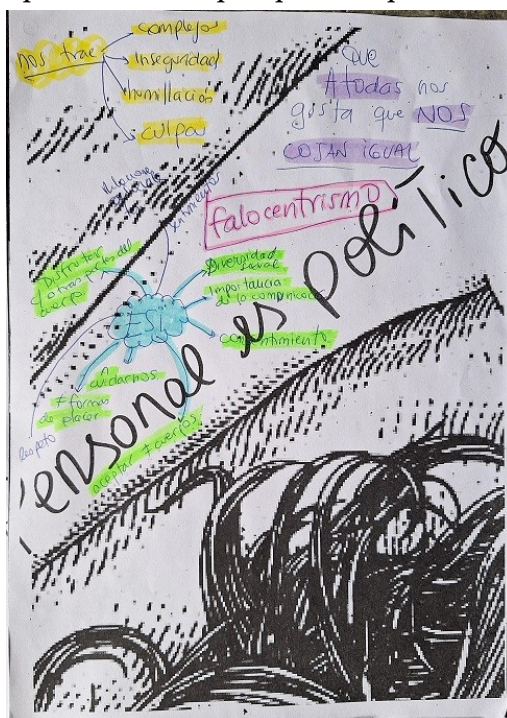 nos trae
complejos
Inseguridad
humillación
culpas
Que
A todas nos
gusta que NOS
COJAN IGUAL
falocentrismo
sentimientos
Disfrutar
otras partes del
cuerpo
ESI
Diversidad
sexual
Importancia
de la comunicac
consentimiento
cuidarnos
≠ formas
de placer
Respeto
aceptar ≠ cuerpos
ersonal es político